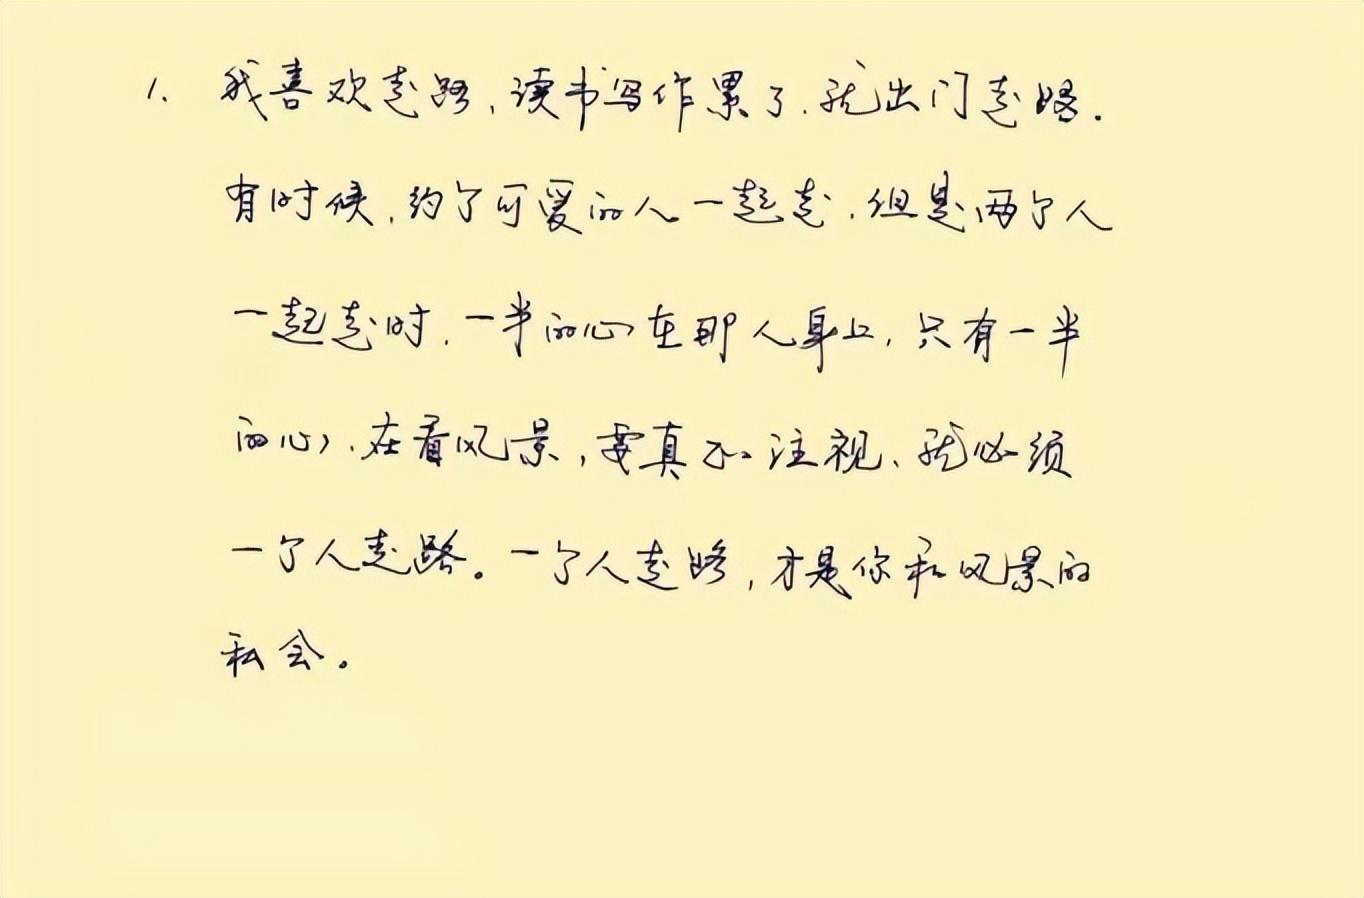 1. 我喜欢走路，读书写作累了，就出门走路.
有时候，约了可爱的人一起走，但是两个人
一起走时，一半的心在那人身上，只有一半
的心，在看风景，要真正注视、就必须
一个人走路。一个人走路，才是你和风景的
私会。